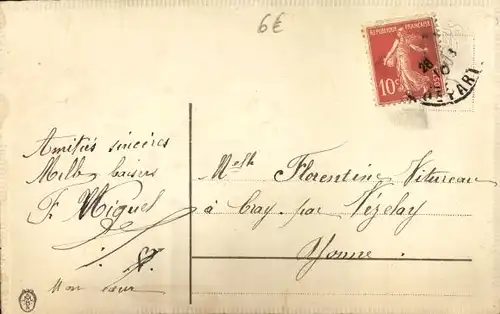 6€
REPUBLIQUE FRANÇAISE
10c
28
10
PARIS
Amitiés sincères
Mille baisers
F. Miguel
Mon cœur
Melle Florentine Vitureau
à Cray par Vézelay
Yonne